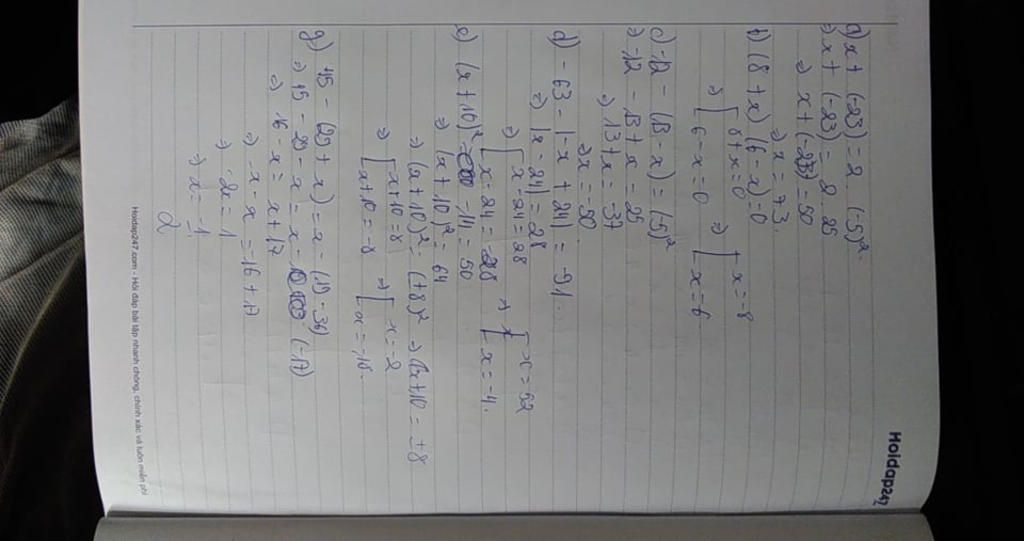 Hoidap247
a) x + (-23) = 2 . (-5)².
=> x + (-23) = 2 . 25
=> x + (-23) = 50
=> x = 73.
b) (8 + x) (6 - x) = 0
=> [ 8 + x = 0 => [ x = -8
6 - x = 0 x = 6
c) -12 - (13 - x) = (-5)²
=> -12 - 13 + x = 25
=> 13 + x = -37
=> x = -50
d) - 63 - |- x + 24| = -91.
=> |x - 24| = 28
=> [ x - 24 = 28 => [ x = 52
x - 24 = -28 x = -4.
e) (x + 10)² - 14 = 50
=> (x + 10)² = 64
=> (x + 10)² = (±8)² => (x + 10 = ±8
=> [ x + 10 = 8 => [ x = -2
x + 10 = -8 x = -18.
g) 45 - (29 + x) = x - (19 - 36)
=> 45 - 29 - x = x - (-17)
=> 16 - x = x + 17
=> - x - x = -16 + 17
=> -2x = 1
=> x = -1
2
Hoidap247.com - Hỏi đáp bài tập nhanh chóng, chính xác và luôn miễn phí